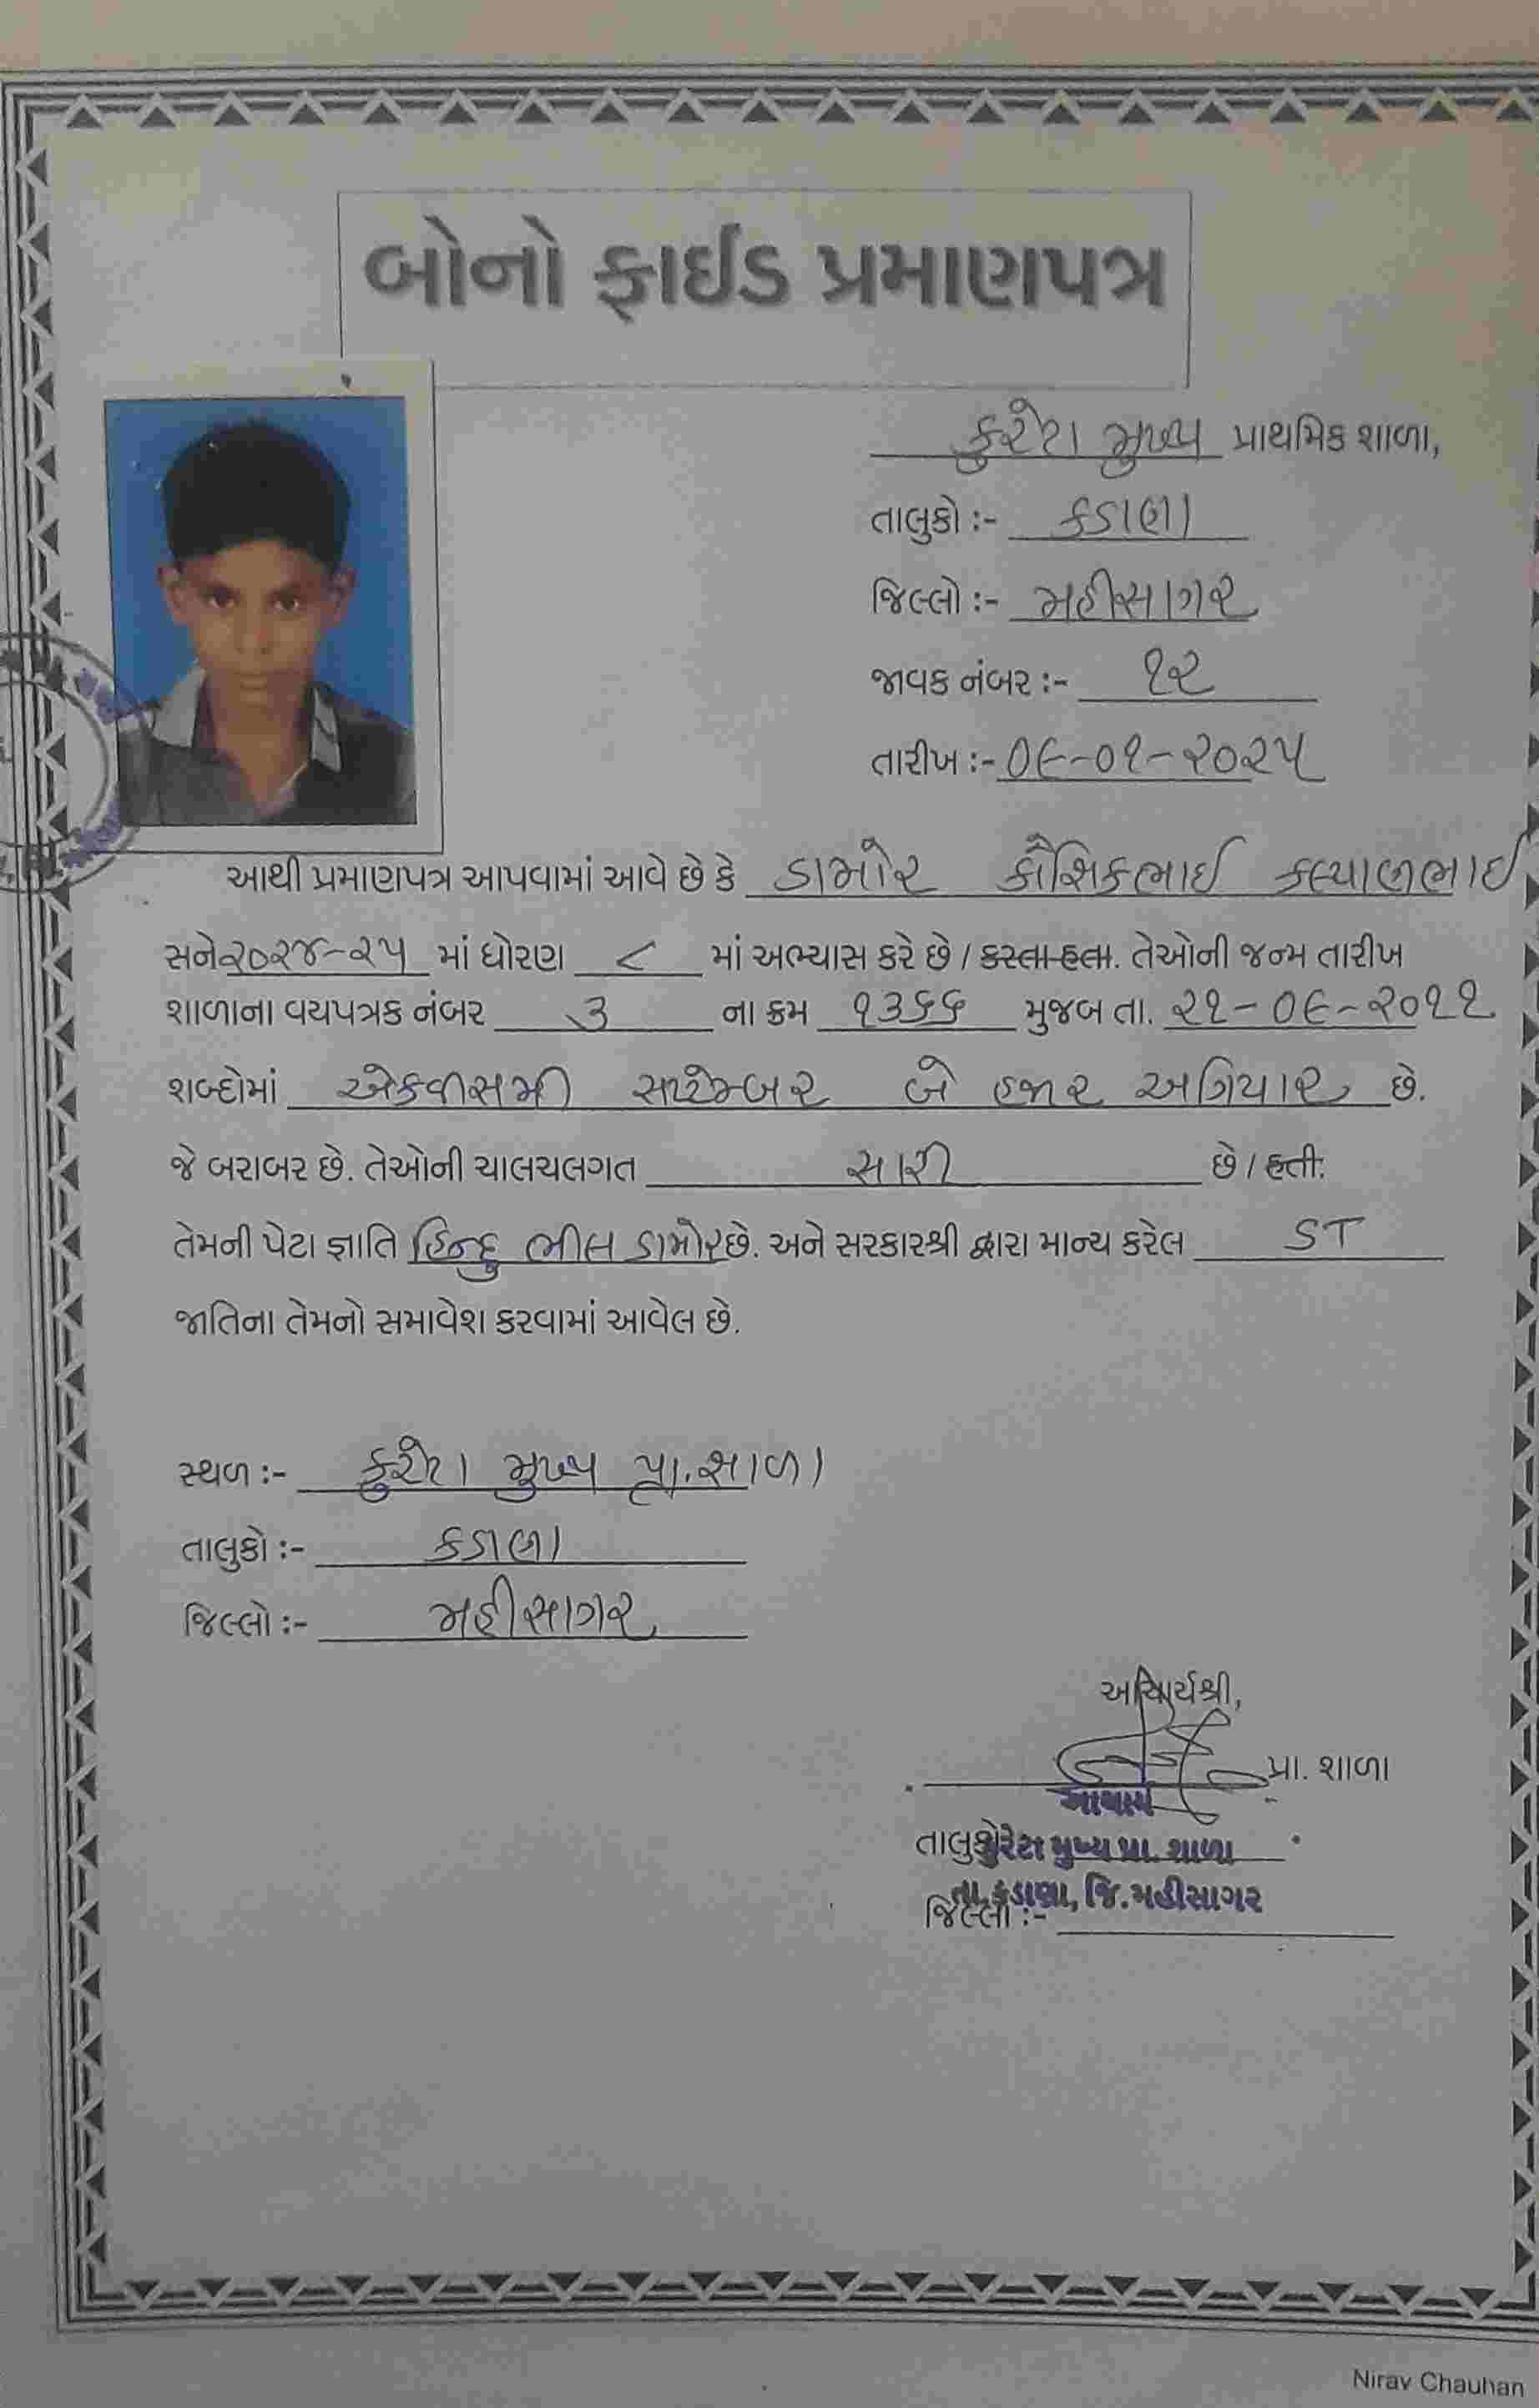 બોનો ફાઈડ પ્રમાણપત્ર
કુરેટા મુખ્ય પ્રાથમિક શાળા,
તાલુકો :- કડાણા
જિલ્લો :- મહીસાગર
જાવક નંબર :- ૧૨
તારીખ :- ૦૯-૦૧-૨૦૨૫
આથી પ્રમાણપત્ર આપવામાં આવે છે કે ડામોર કૌશિકભાઈ કલ્યાણભાઈ
સને ૨૦૨૪-૨૫ માં ધોરણ ૮ માં અભ્યાસ કરે છે / કરતા હતા. તેઓની જન્મ તારીખ
શાળાના વયપત્રક નંબર ૩ ના ક્રમ ૧૩૬૬ મુજબ તા. ૨૧-૦૯-૨૦૧૧
શબ્દોમાં એકવીસમી સપ્ટેમ્બર બે હજાર અગિયાર છે.
જે બરાબર છે. તેઓની ચાલચલગત સારી છે / હતી.
તેમની પેટા જ્ઞાતિ હિન્દુ ભીલ ડામોર છે. અને સરકારશ્રી દ્વારા માન્ય કરેલ ST
જાતિના તેમનો સમાવેશ કરવામાં આવેલ છે.
સ્થળ :- કુરેટા મુખ્ય પ્રા. શાળા
તાલુકો :- કડાણા
જિલ્લો :- મહીસાગર
આચાર્યશ્રી,
પ્રા. શાળા
આચાર્ય
તાલુકો કુરેટા મુખ્ય પ્રા. શાળા
તા. કડાણા, જિ. મહીસાગર
જિલ્લો :-
Nirav Chauhan